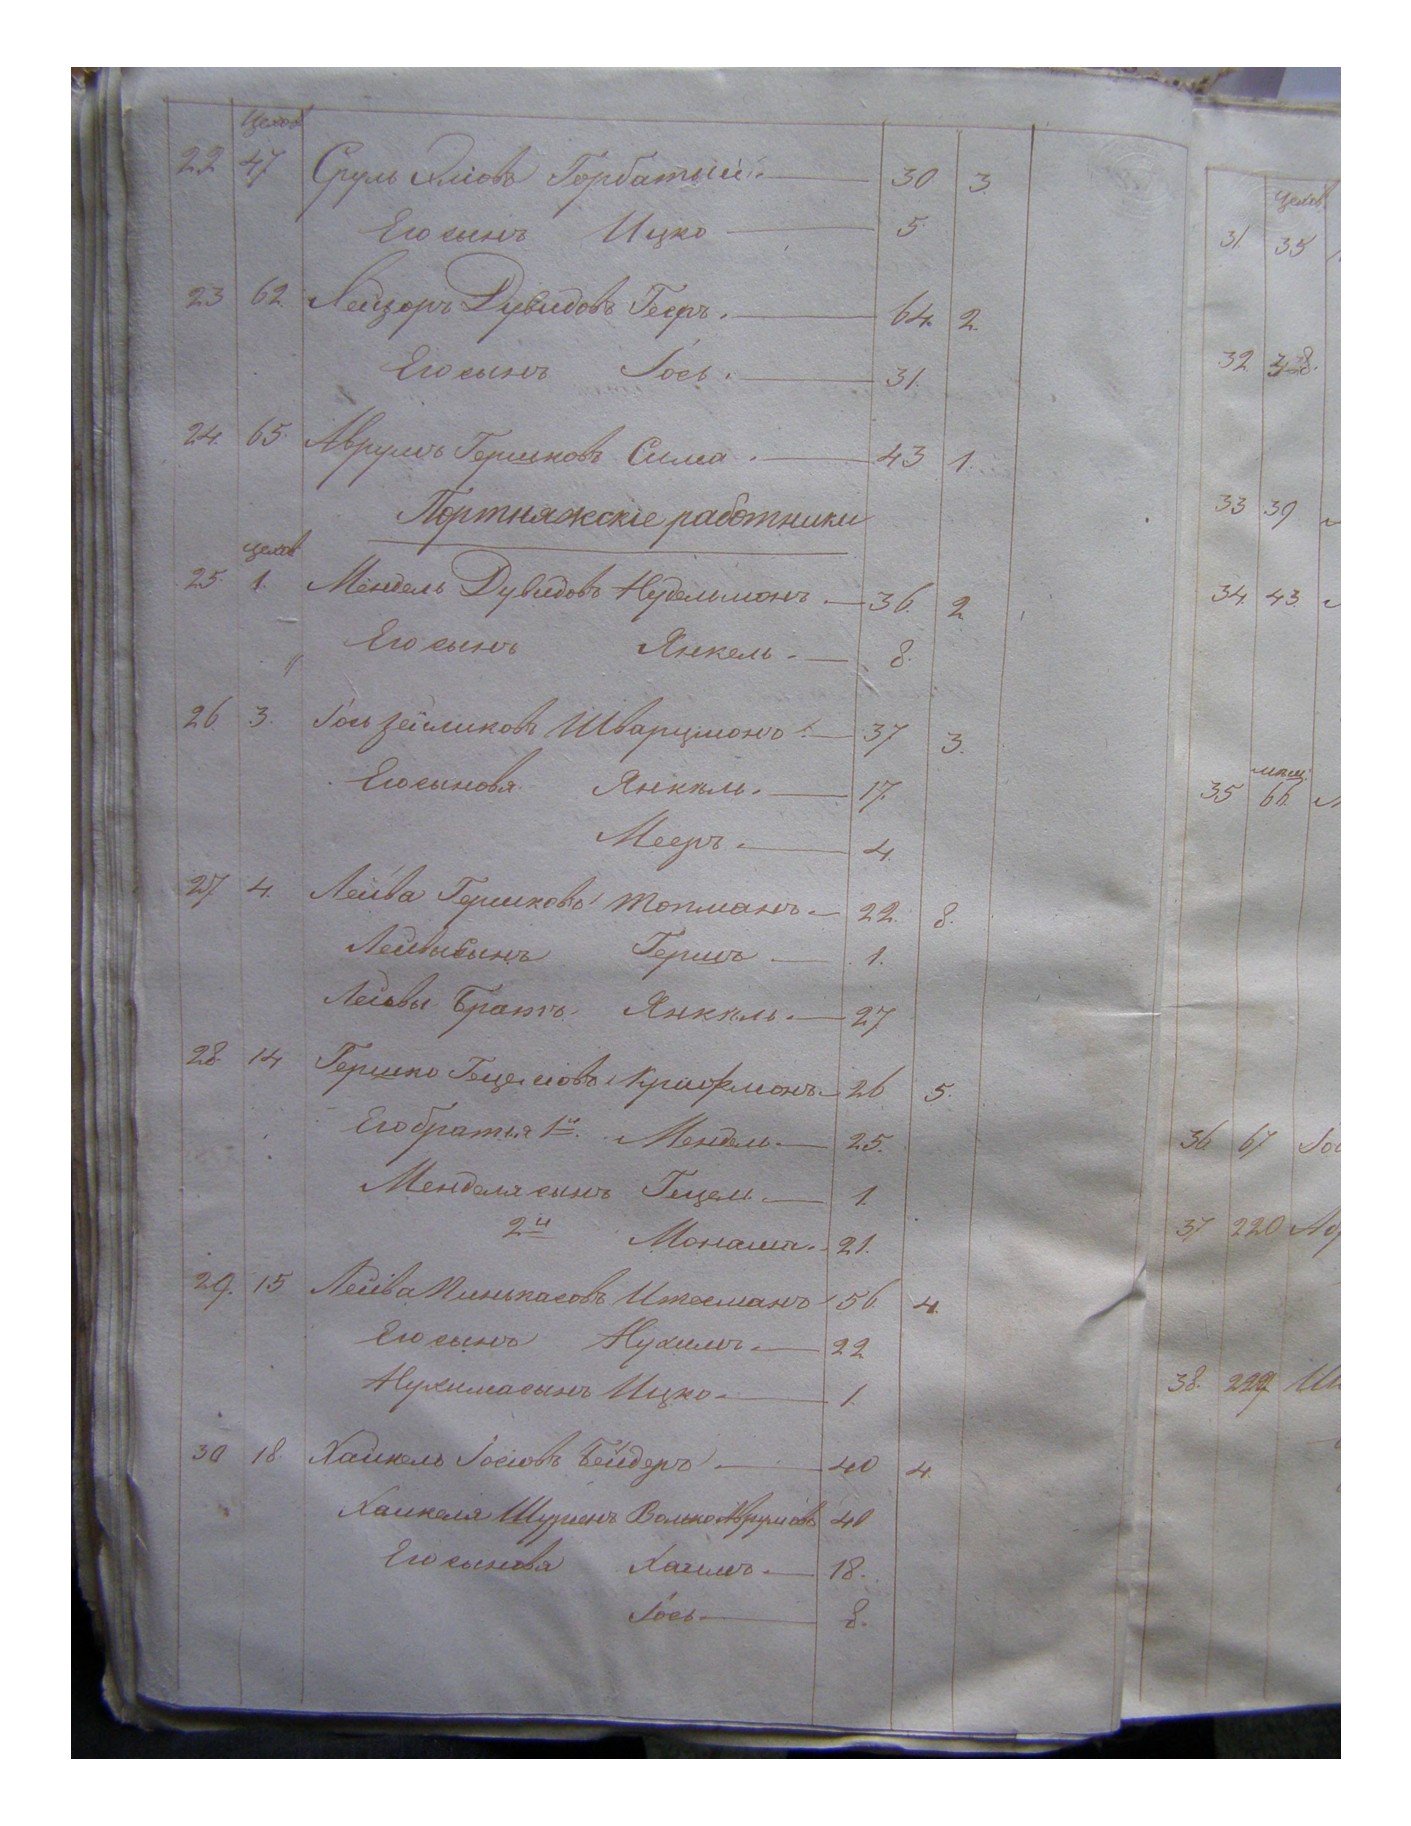 Цехов
22 47 Сруль Хаимовъ Горбатый 30 3.
Его сынъ Ицко 5
23 62 Лейзоръ Дувидовъ Гееръ. 64. 2.
Его сынъ Іось. 31.
24. 65. Аврумъ Гершковъ Сима. 43 1.
Портняжскіе работники
цехов
25. 1. Мендель Дувидовъ Нудельмонъ 36. 2
Его сынъ Янкель. 8.
26 3. Іось Зейликовъ Шварцмонъ 37 3.
Его сыновя Янкель. 17.
Мееръ. 4.
27 4. Лейва Гершковъ Топманъ 22. 8.
Лейвы сынъ Гершъ 1.
Лейвы братъ Янкель. 27
28 14 Гершко Гецелiовъ 26 5.
Его братья 1й Мендель 25.
Менделя сынъ Гецель 1.
2й Монашъ. 21.
29. 15 Лейва Пинькасовъ Итесманъ 56 4.
Его сынъ Нухимъ. 22
Нухима сынъ Ицко. 1.
30 18. Хаикель Іосіовъ Бейдеръ 40 4.
Хаикеля Шуринъ Волько Аврумовъ 40
Его сыновя Хаимъ. 18.
Іось. 8.
цехов
31. 35
32
33 39
34. 43.
мещ.
35 66.
36 67 Іос
37 220
38. 222